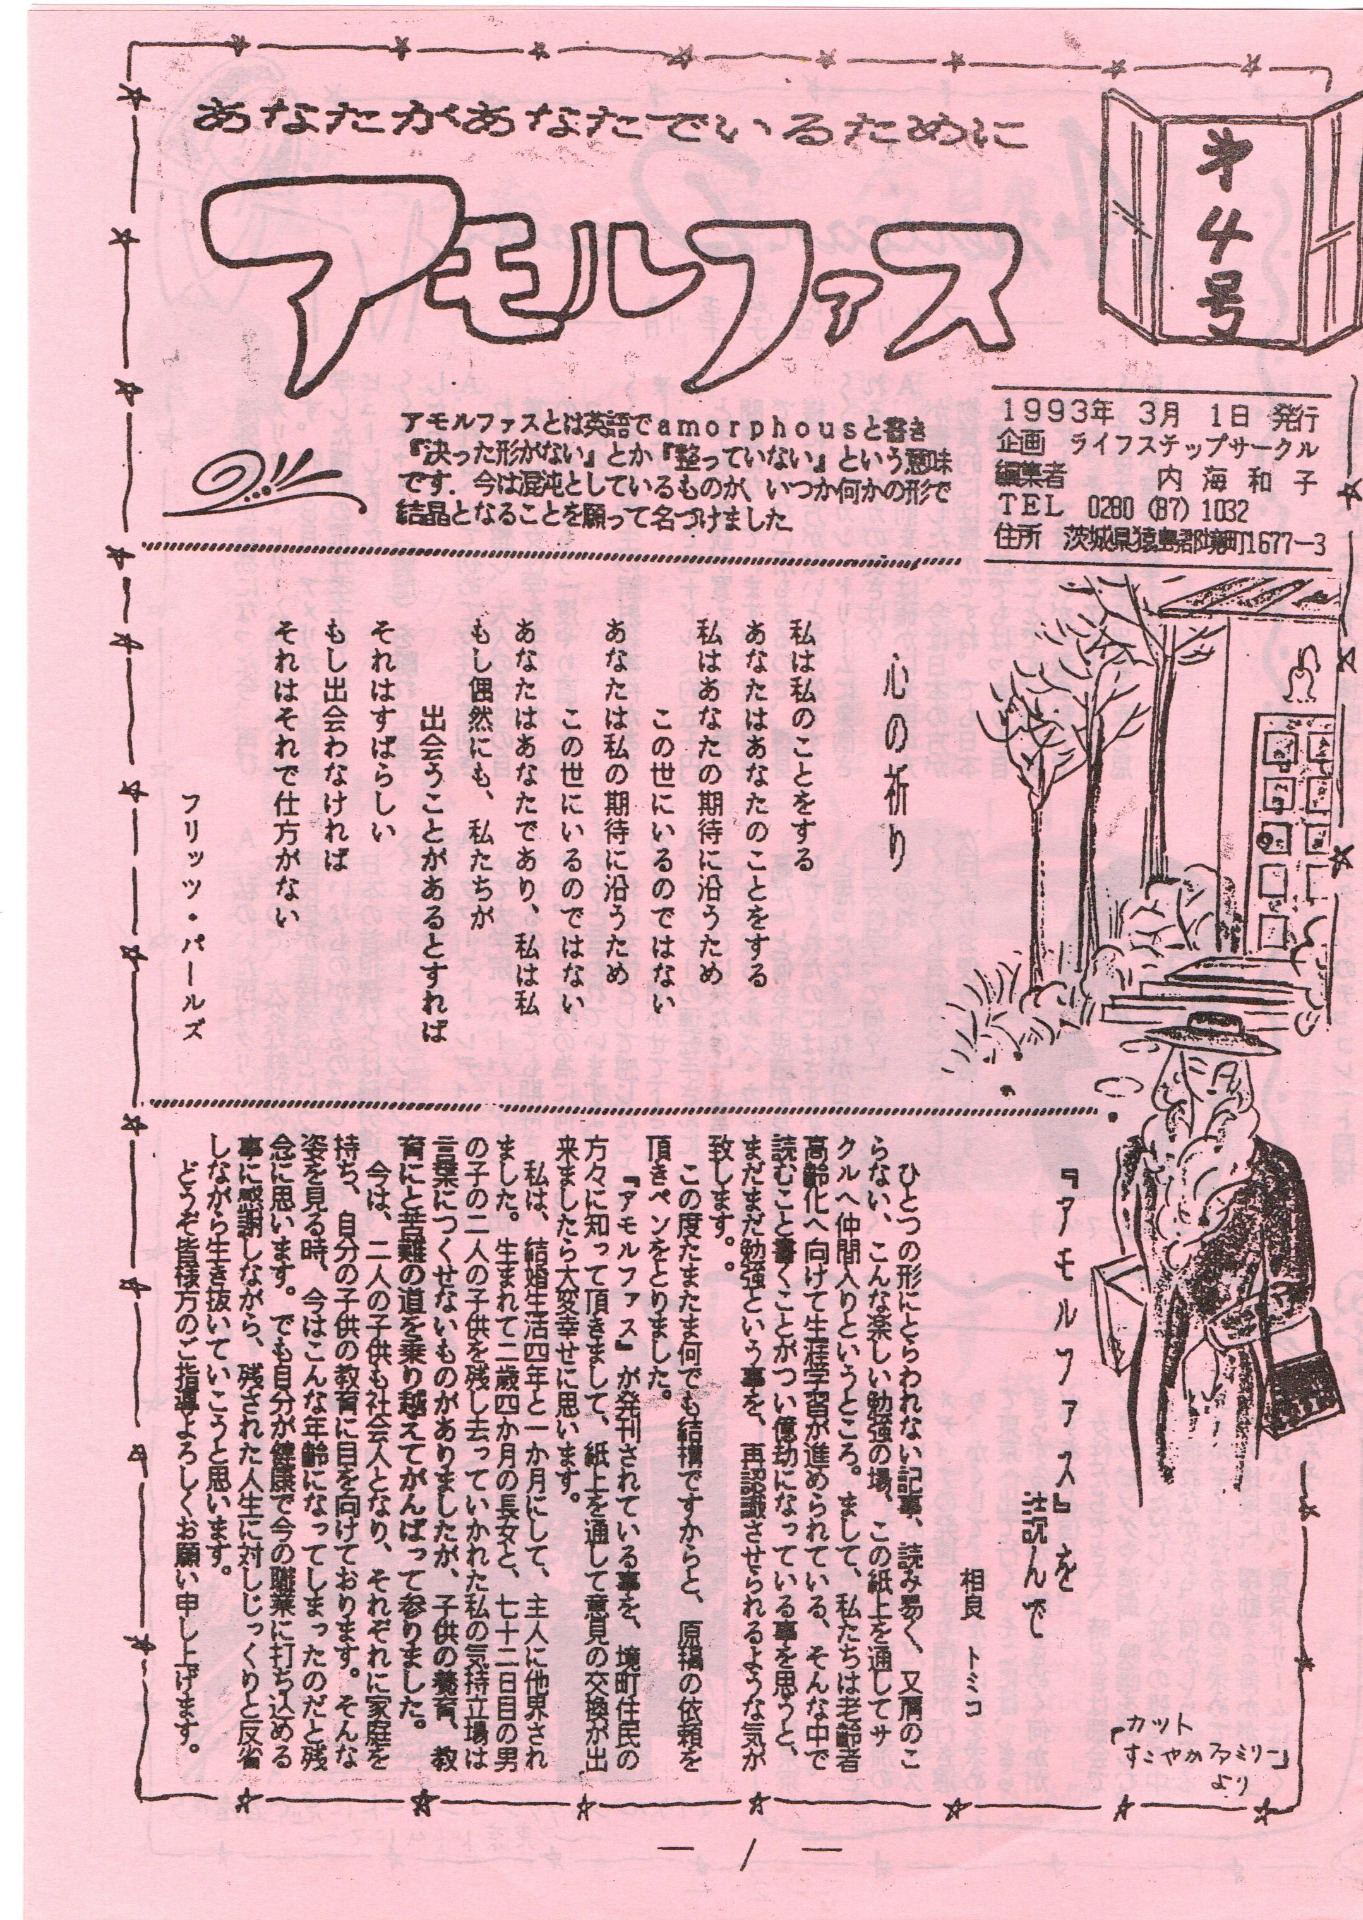 あなたがあなたでいるために
アモルファス
第4号
アモルファスとは英語でamorphousと書き
『決った形がない』とか『整っていない』という意味
です．今は混沌としているものが、いつか何かの形で
結晶となることを願って名づけました
1993年 3月 1日 発行
企画 ライフステップサークル
編集者 内 海 和 子
TEL 0280 (87) 1032
住所 茨城県猿島郡境町1677－3
心の祈り
私は私のことをする
あなたはあなたのことをする
私はあなたの期待に沿うため
この世にいるのではない
あなたは私の期待に沿うため
この世にいるのではない
あなたはあなたであり、私は私
もし偶然にも、私たちが
出会うことがあるとすれば
それはすばらしい
もし出会わなければ
それはそれで仕方がない
フリッツ・パールズ
『アモルファス』を
読んで
相良 トミコ
ひとつの形にとらわれない記事、読み易く、又肩のこ
らない、こんな楽しい勉強の場、この紙上を通してサ
クルへ仲間入りというところ。まして、私たちは老齢者
高齢化へ向けて生涯学習が進められている、そんな中で
読むこと書くことがつい億劫になっている事を思うと、
まだまだ勉強という事を、再認識させられるような気が
致します。
この度たまたま何でも結構ですからと、原稿の依頼を
頂きペンをとりました。
『アモルファス』が発刊されている事を、境町住民の
方々に知って頂きまして、紙上を通して意見の交換が出
来ましたら大変幸せに思います。
私は、結婚生活四年と一か月にして、主人に他界され
ました。生まれて二歳四か月の長女と、七十二日目の男
の子の二人の子供を残し去っていかれた私の気持立場は
言葉につくせないものがありましたが、子供の養育、教
育にと苦難の道を乗り越えてがんばって参りました。
今は、二人の子供も社会人となり、それぞれに家庭を
持ち、自分の子供の教育に目を向けております。そんな
姿を見る時、今はこんな年齢になってしまったのだと残
念に思います。でも自分が健康で今の職業に打ち込める
事に感謝しながら、残された人生に対しじっくりと反省
しながら生き抜いていこうと思います。
どうぞ皆様方のご指導よろしくお願い申し上げます。
「カット
すこやかファミリー」
より
— 1 —